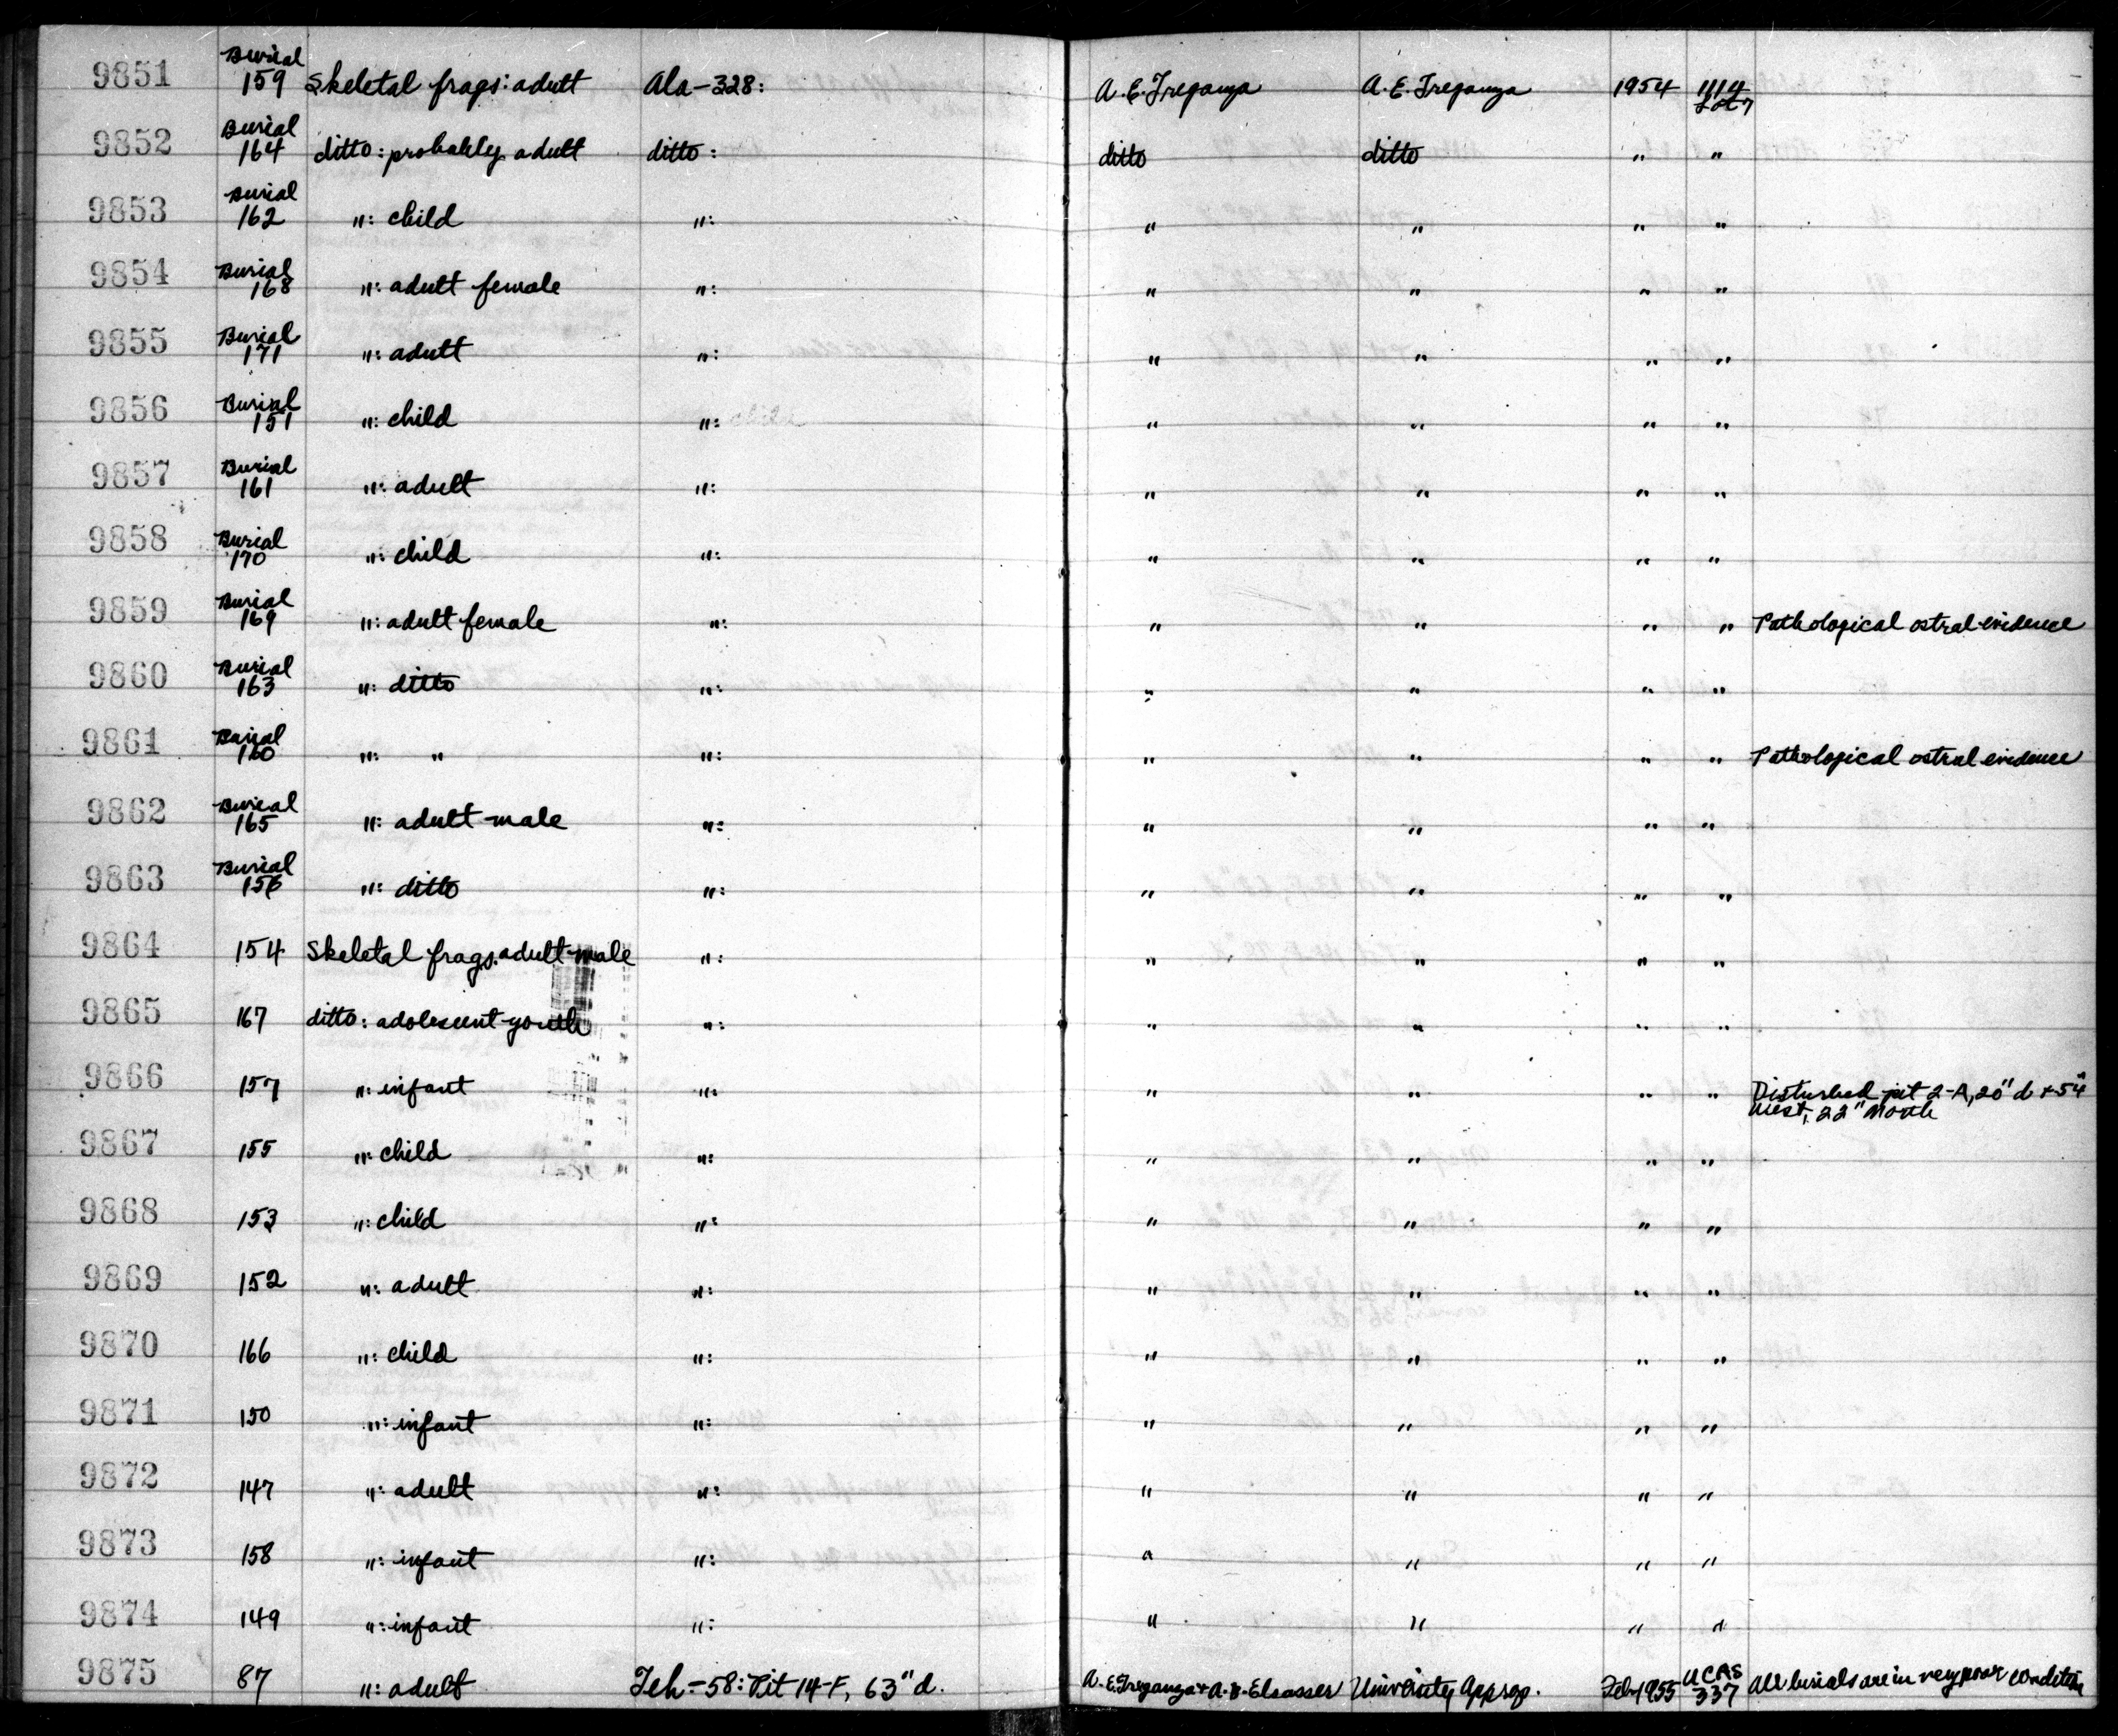 9851 Burial 159 Skeletal frags: adult Ala-328: A.E. Treganza A.E. Treganza 1954 1114 Lot 7
9852 Burial 164 ditto: probably adult ditto: ditto ditto " "
9853 Burial 162 ": child ": " " " "
9854 Burial 168 ": adult female ": " " " "
9855 Burial 171 ": adult ": " " " "
9856 Burial 151 ": child ": " " " "
9857 Burial 161 ": adult ": " " " "
9858 Burial 170 ": child ": " " " "
9859 Burial 169 ": adult female ": " " " " Pathological ostral evidence
9860 Burial 163 ": ditto ": " " " "
9861 Burial 160 ": " ": " " " " Pathological ostral evidence
9862 Burial 165 ": adult male ": " " " "
9863 Burial 156 ": ditto ": " " " "
9864 154 Skeletal frags. adult male ": " " " "
9865 167 ditto: adolescent-youth ": " " " "
9866 157 ": infant ": " " " " Disturbed pit 2-A, 20" d + 54" West, 22" North
9867 155 ": child ": " " " "
9868 153 ": child ": " " " "
9869 152 ": adult ": " " " "
9870 166 ": child ": " " " "
9871 150 ": infant ": " " " "
9872 147 ": adult ": " " " "
9873 158 ": infant ": " " " "
9874 149 ": infant ": " " " "
9875 87 ": adult Teh-58: Pit 14-F, 63" d. A.E. Treganza + A.B. Elsasser University Approp. Feb 1955 UCAS 337 All burials are in very poor condition